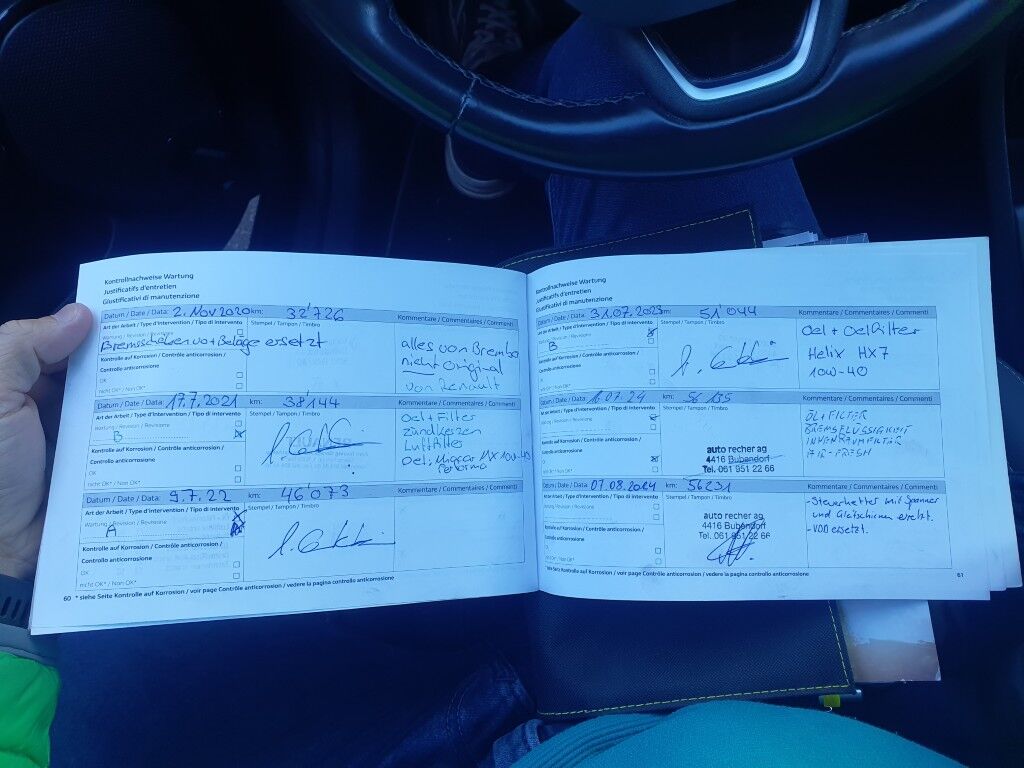 Kontrollnachweise Wartung
Justificatifs d'entretien
Giustificativi di manutenzione
Datum / Date / Data: 2. Nov 2020 km: 32'726
Kommentare / Commentaires / Commenti
Art der Arbeit / Type d'intervention / Tipo di intervento
Stempel / Tampon / Timbro
Wartung / Revision / Revisione
Bremsscheiben vo + Beläge ersetzt
Kontrolle auf Korrosion / Contrôle anticorrosion /
Controllo anticorrosione
OK
nicht OK* / Non OK*
alles von Brembo
nicht Original
von Renault
Datum / Date / Data: 17.7.2021 km: 38'144
Kommentare / Commentaires / Commenti
Art der Arbeit / Type d'intervention / Tipo di intervento
Stempel / Tampon / Timbro
Wartung / Revision / Revisione
B
Kontrolle auf Korrosion / Contrôle anticorrosion /
Controllo anticorrosione
OK
nicht OK* / Non OK*
Oel + Filter
Zündkerzen
Luftfilter
Oel: 10W-40
Datum / Date / Data: 9.7.22 km: 46'073
Kommentare / Commentaires / Commenti
Art der Arbeit / Type d'intervention / Tipo di intervento
Stempel / Tampon / Timbro
Wartung / Revision / Revisione
A
Kontrolle auf Korrosion / Contrôle anticorrosion /
Controllo anticorrosione
OK
nicht OK* / Non OK*
60 * siehe Seite Kontrolle auf Korrosion / voir page Contrôle anticorrosion / vedere la pagina controllo anticorrosione
Kontrollnachweise Wartung
Justificatifs d'entretien
Giustificativi di manutenzione
Datum / Date / Data: 31.07.2023 km: 51'044
Kommentare / Commentaires / Commenti
Art der Arbeit / Type d'intervention / Tipo di intervento
Stempel / Tampon / Timbro
Wartung / Revision / Revisione
B
Kontrolle auf Korrosion / Contrôle anticorrosion /
Controllo anticorrosione
OK
nicht OK* / Non OK*
Oel + Oelfilter
Helix HX7
10W-40
Datum / Date / Data: .07.24 km: 56'135
Kommentare / Commentaires / Commenti
Art der Arbeit / Type d'intervention / Tipo di intervento
Stempel / Tampon / Timbro
Wartung / Revision / Revisione
Kontrolle auf Korrosion / Contrôle anticorrosion /
Controllo anticorrosione
OK
nicht OK* / Non OK*
auto recher ag
4416 Bubendorf
Tel. 061 951 22 66
ÖL + FILTER
BREMSFLÜSSIGKEIT
INNENRAUMFILTER
AIR-FRESH
Datum / Date / Data: 07.08.2024 km: 56231
Kommentare / Commentaires / Commenti
Art der Arbeit / Type d'intervention / Tipo di intervento
Stempel / Tampon / Timbro
Wartung / Revision / Revisione
Kontrolle auf Korrosion / Contrôle anticorrosion /
Controllo anticorrosione
OK
nicht OK* / Non OK*
auto recher ag
4416 Bubendorf
Tel. 061 951 22 66
- Steuerketter mit Spanner
und Gleitschienen ersetzt.
- VDD ersetzt.
* siehe Seite Kontrolle auf Korrosion / voir page Contrôle anticorrosion / vedere la pagina controllo anticorrosione
61